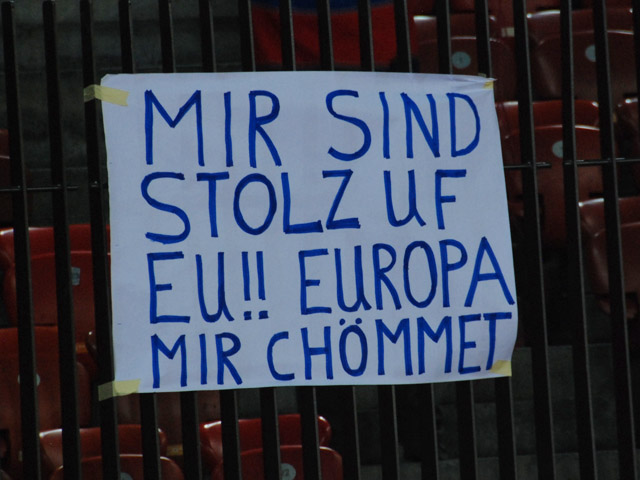 MIR SIND
STOLZ UF
EU!! EUROPA
MIR CHÖMMET